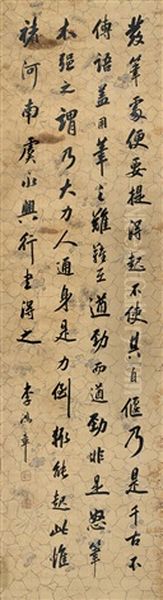 發筆處便要提得起不使其自偃乃是千古不
傳語蓋用筆之難難在遒勁而遒勁非是怒筆
木強之謂乃大力人通身是力倒輒能起此惟
褚河南虞永興行書得之
李鴻章